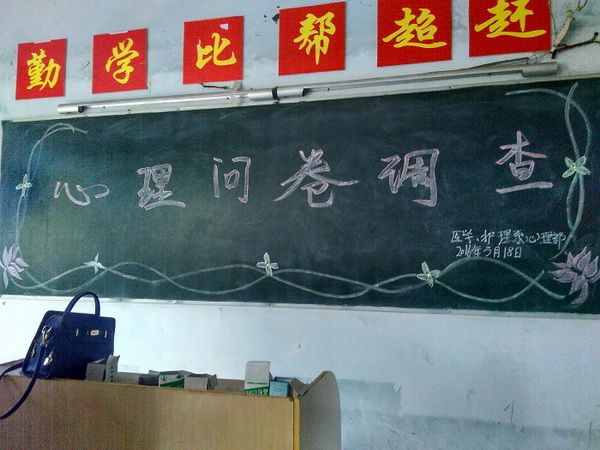 勤学比帮超赶
心理问卷调查
医学、护理系心理部
2016年5月18日